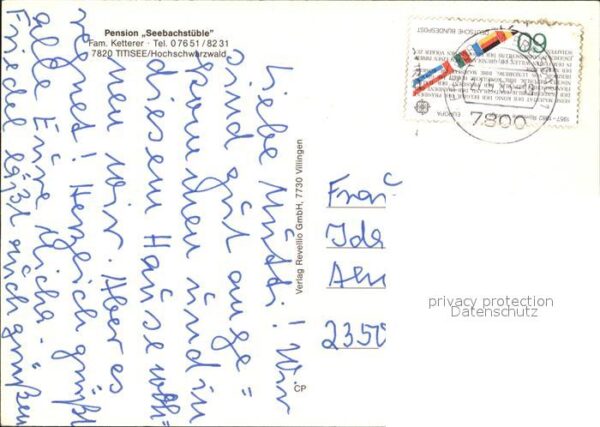 Pension „Seebachstüble"
Fam. Ketterer · Tel. 0 76 51 / 82 31
7820 TITISEE/Hochschwarzwald
Liebe Mutti! Wir
sind gut ange=
kommen und in
diesem Hause woh=
nen wir. Aber es
regnet! Herzlich grüßt
alle Eure Micha.
Friedel läßt auch grüßen
Verlag Revellio GmbH, 7730 Villingen
CP
DEUTSCHE BUNDESPOST
60
EUROPA
7800
Frau
Ida
2350
privacy protection
Datenschutz